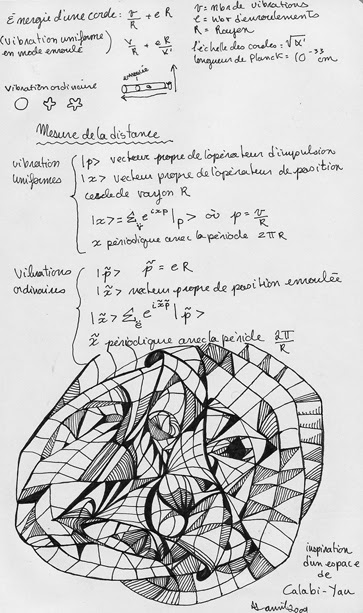 Énergie d'une corde: v/R + e R
(vibration uniforme en mode enroulé) v/R + eR/α'
v = nbr de vibrations
e = nbr d'enroulements
R = Rayon
l'échelle des cordes: √α'
longueur de Planck = 10⁻³³ cm
enroulée
vibration ordinaire
Mesure de la distance
vibration uniformes
|p> vecteur propre de l'opérateur d'impulsion
|x> vecteur propre de l'opérateur de position
cercle de rayon R
|x> = Σ_v e^{ixp} |p> où p = v/R
x périodique avec la période 2πR
Vibrations ordinaires
|p̃> p̃ = eR
|x̃> vecteur propre de position enroulée
|x̃> Σ_e e^{ix̃p̃} |p̃>
x̃ périodique avec la période 2π/R
inspiration
d'un espace
de
Calabi-Yau
avril 2009